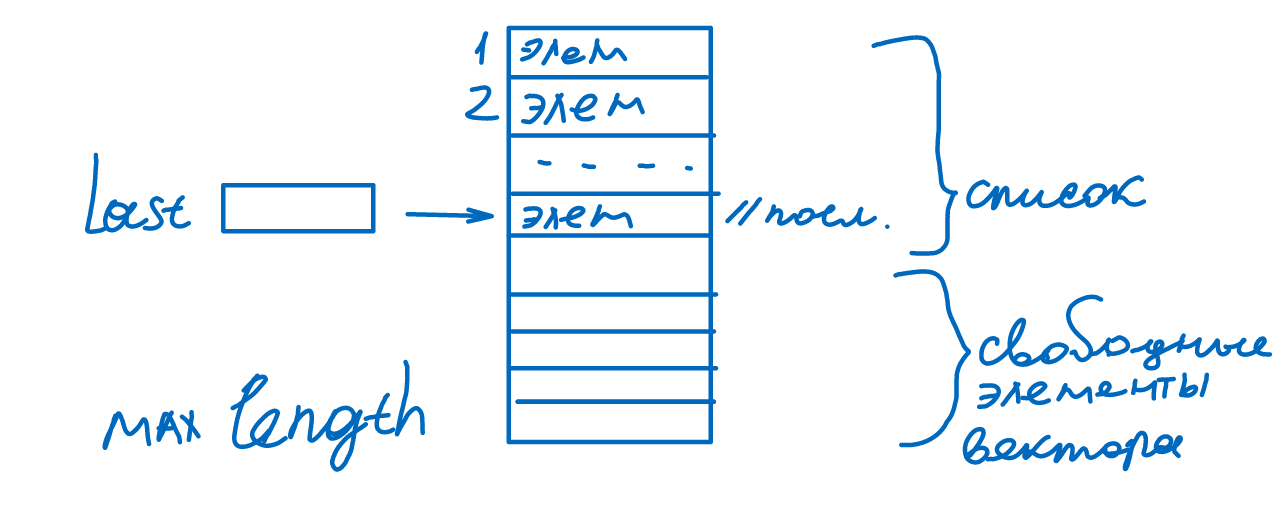 1 элем
2 элем
- - - -
Last
элем
// посл.
список
свободные
элементы
вектора
max length